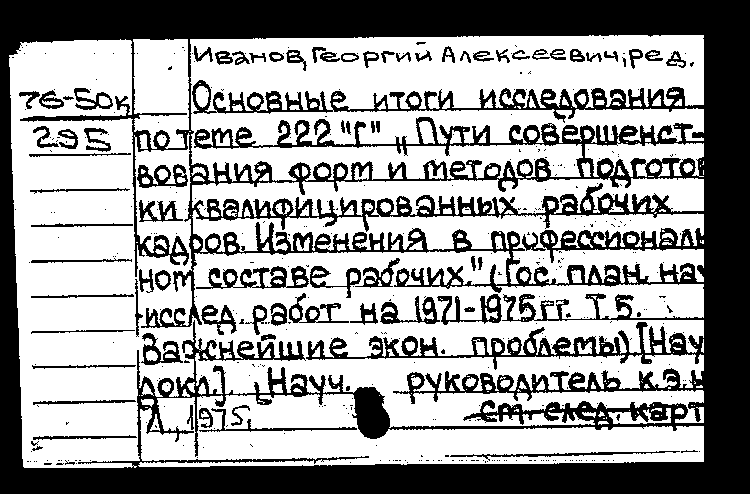 Иванов, Георгий Алексеевич, ред.
76-50к
295
Основные итоги исследования
по теме 222 "Г" „Пути совершенст-
вования форм и методов подготов
ки квалифицированных рабочих
кадров. Изменения в профессиональ
ном составе рабочих." (Гос. план. нау
-исслед. работ на 1971-1975 гг. Т. 5.
Важнейшие экон. проблемы) [Нау
докл.]. [Науч. руководитель к.э.н
Л., 1975.
см. след. карт